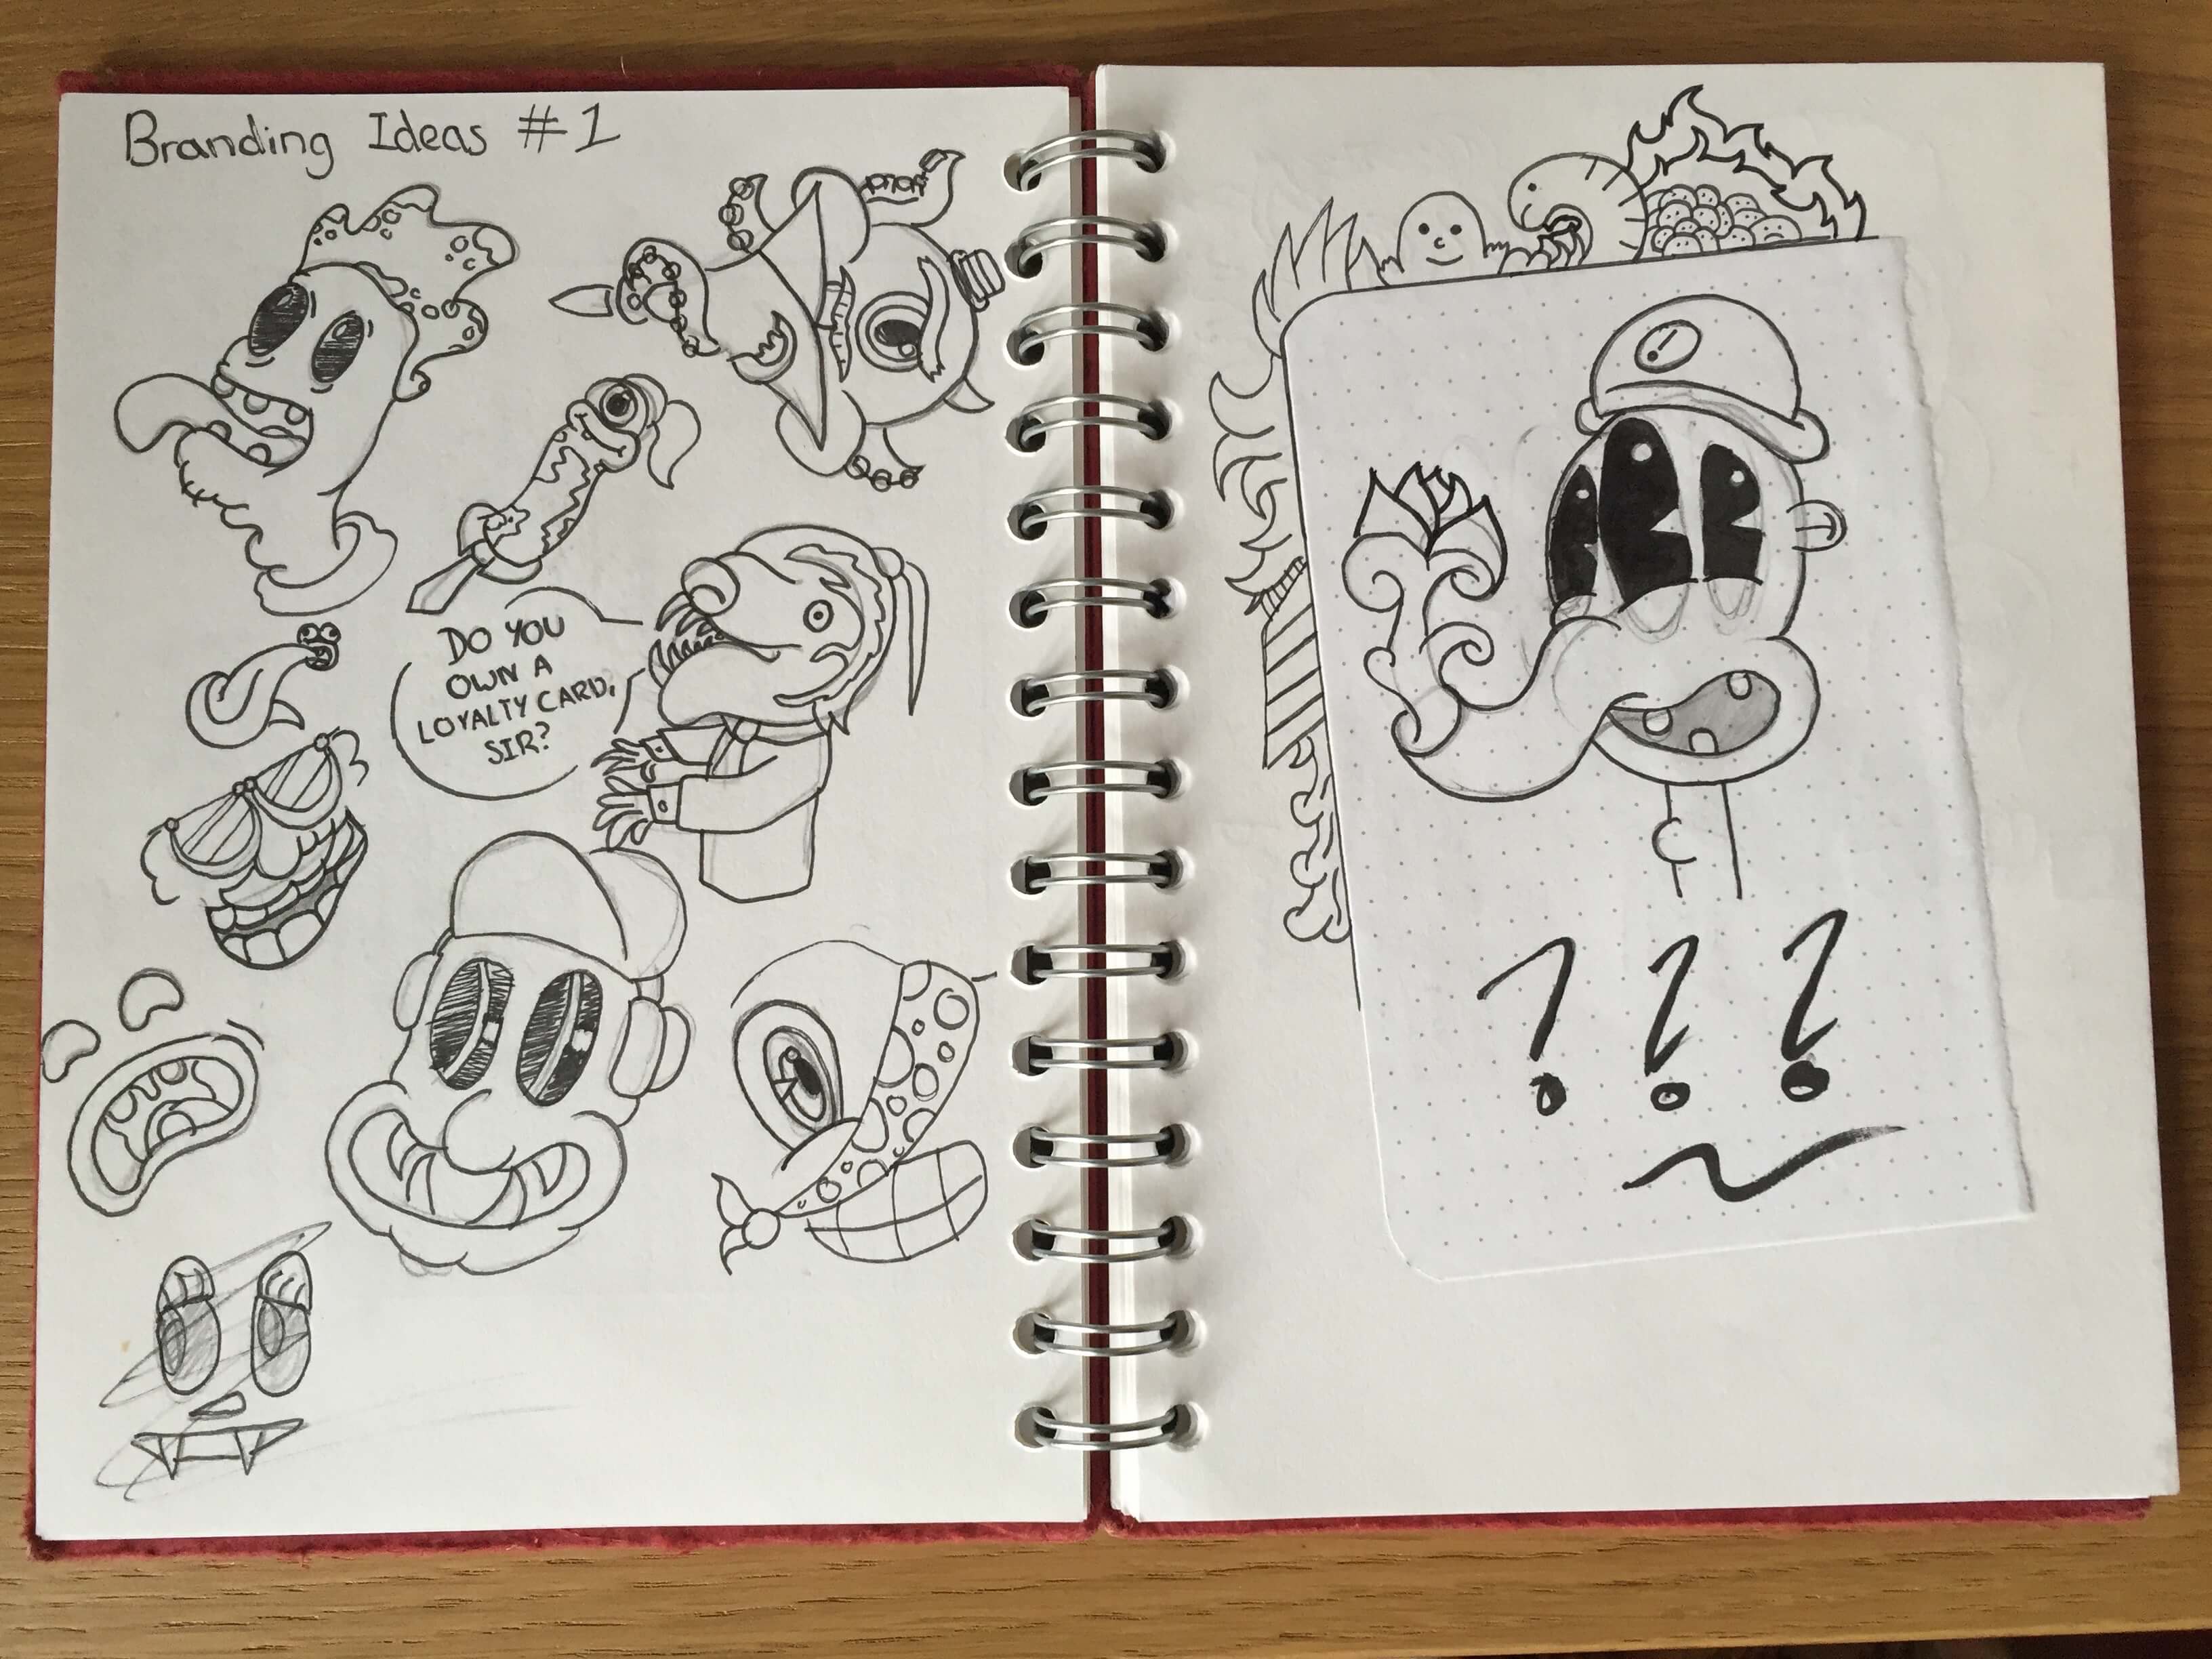 Branding Ideas #1
DO YOU
OWN A
LOYALTY CARD,
SIR?
???